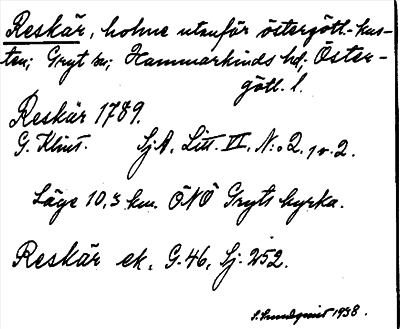 Reskär, holme utanför östergötl.-kus-
ten; Gryt sn; Hammarkinds hd; Öster-
götl. l.
Reskär 1789.
G. Klint. SjA. Litt. II, N:o 2, 1 v. 2.
Läge 10,3 km. ÖNÖ Gryts kyrka.
Reskär ek. G. 46, Sj. 252.
S. Sundqvist 1938.